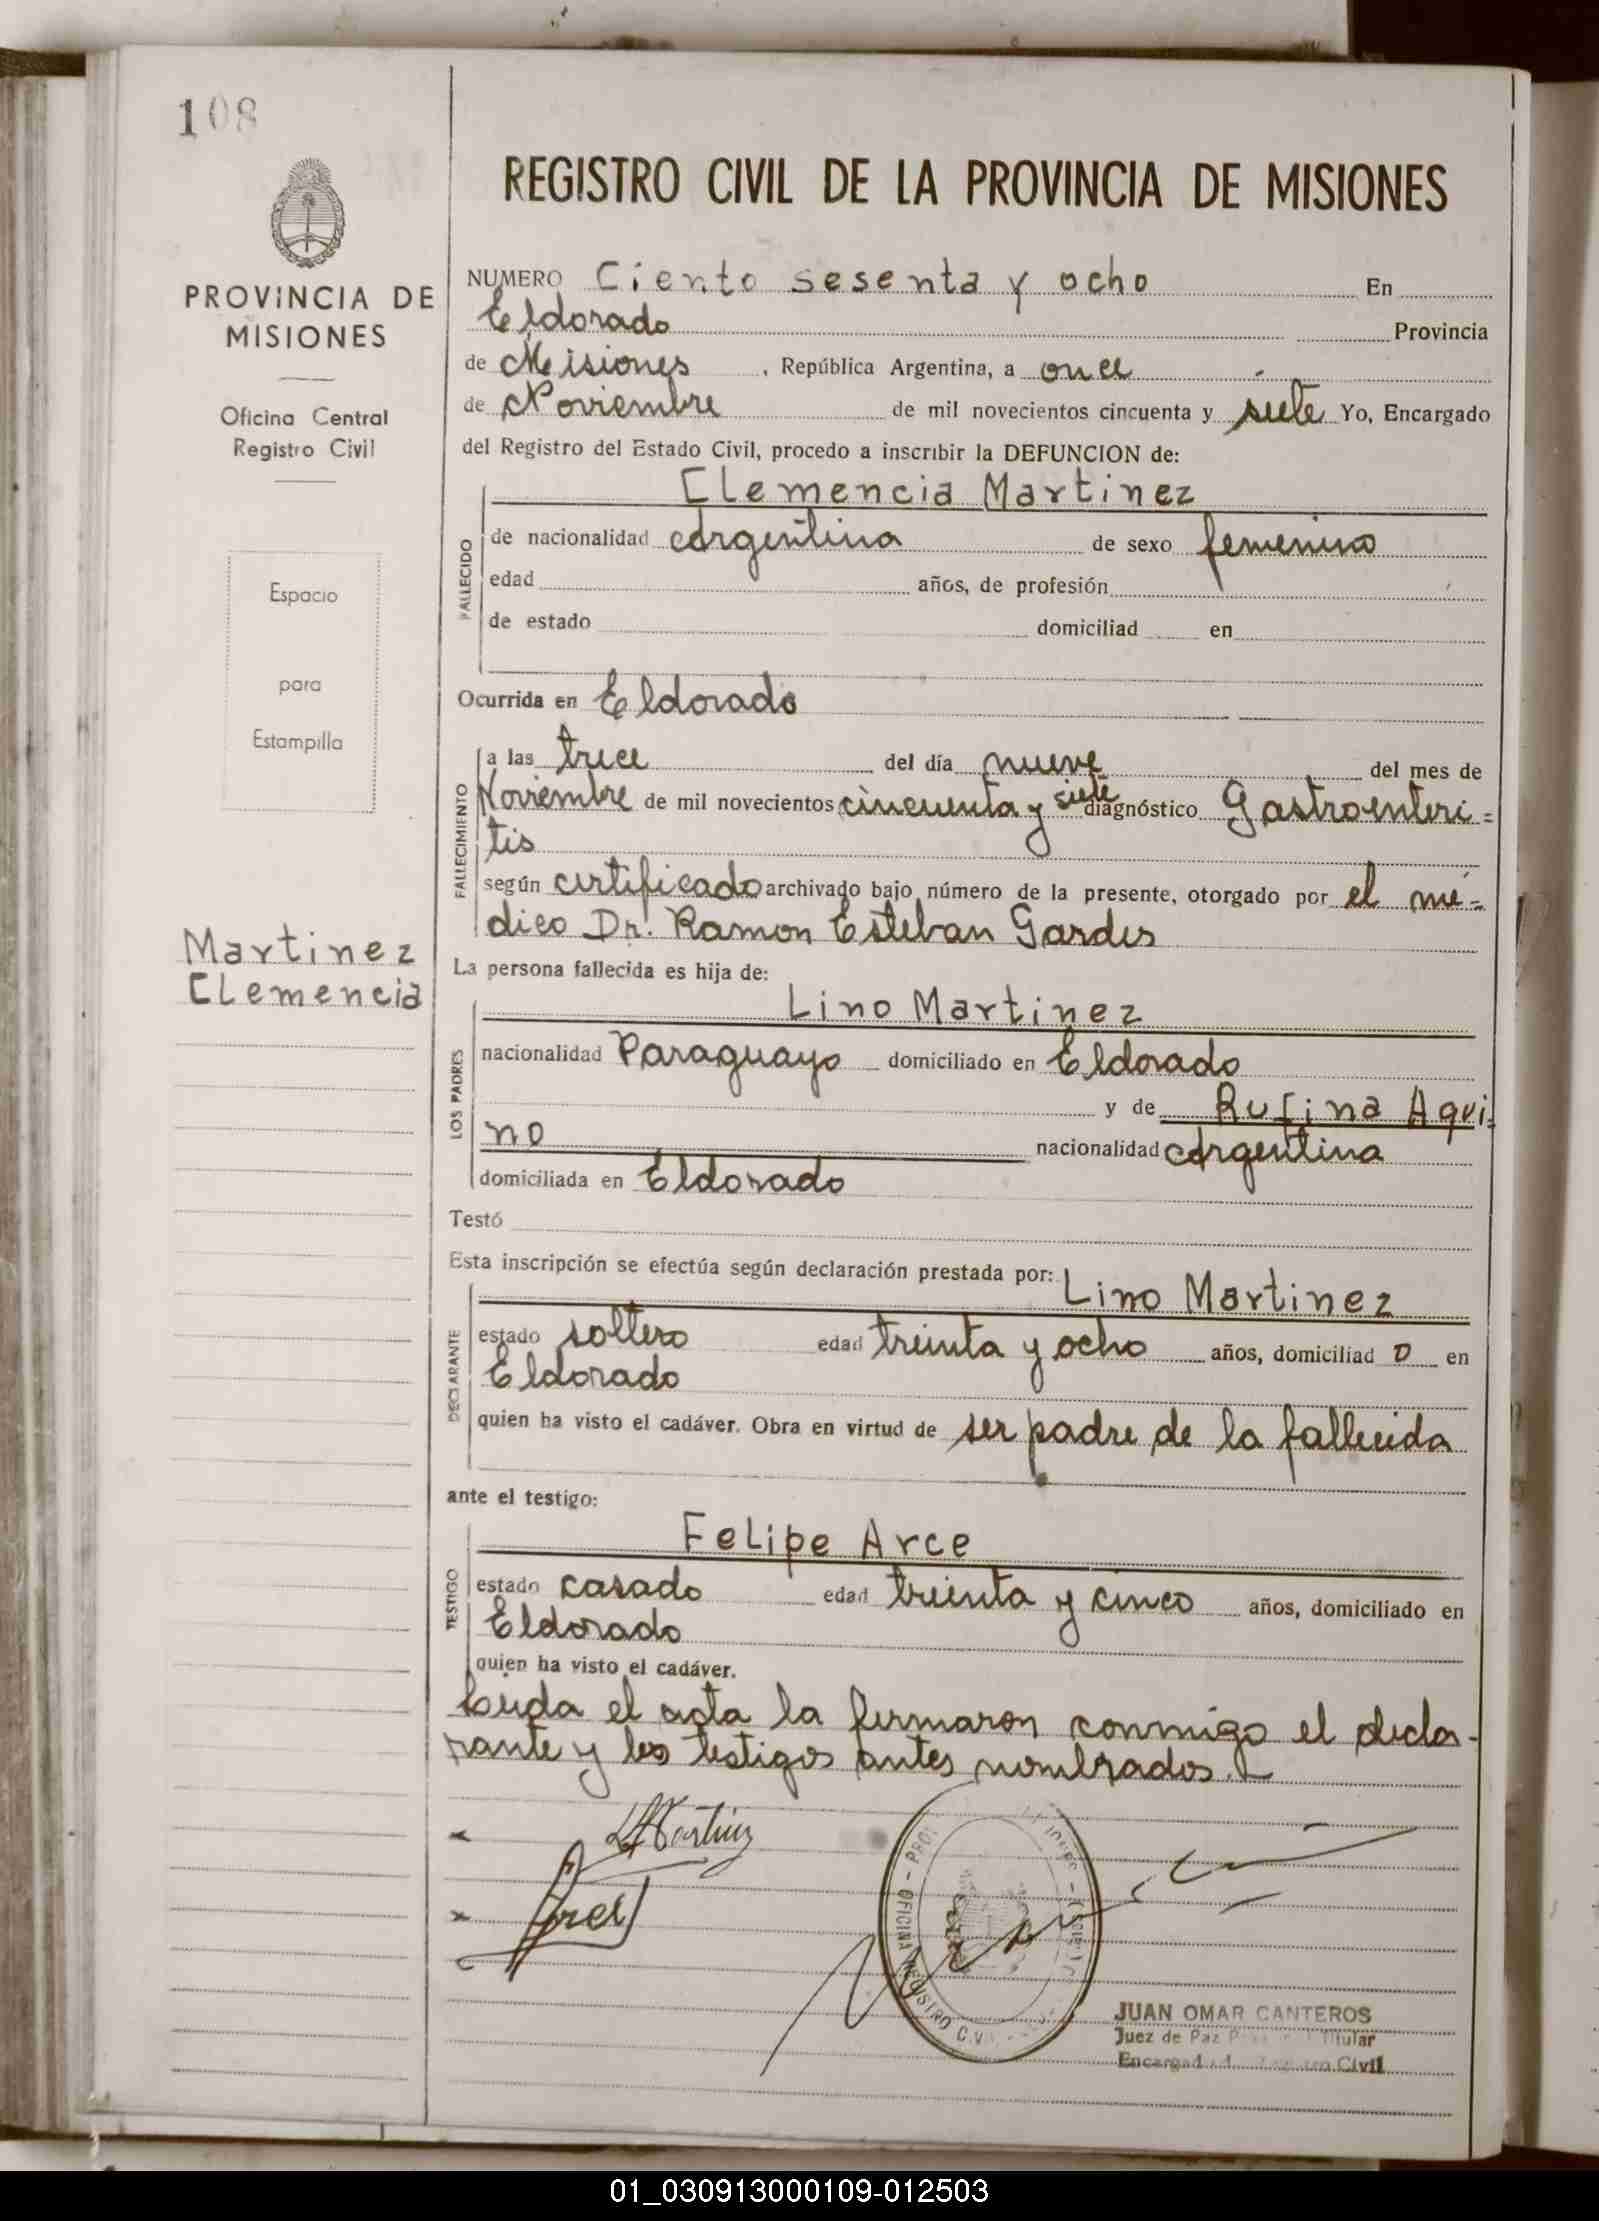 108
REGISTRO CIVIL DE LA PROVINCIA DE MISIONES
PROVINCIA DE
MISIONES
Oficina Central
Registro Civil
Espacio
para
Estampilla
Martinez
Clemencia
NUMERO Ciento sesenta y ocho En
Eldorado Provincia
de Misiones, República Argentina, a once
de Noviembre de mil novecientos cincuenta y siete Yo, Encargado
del Registro del Estado Civil, procedo a inscribir la DEFUNCION de:
Clemencia Martinez
FALLECIDO
de nacionalidad Argentina de sexo femenino
edad años, de profesión
de estado domiciliad en
Ocurrida en Eldorado
FALLECIMIENTO
a las trece del día nueve del mes de
Noviembre de mil novecientos cincuenta y siete diagnóstico Gastroenteri=
tis
según certificado archivado bajo número de la presente, otorgado por el mé=
dico Dr. Ramon Esteban Gardes
La persona fallecida es hija de:
LOS PADRES
Lino Martinez
nacionalidad Paraguayo domiciliado en Eldorado
y de Rufina Aqui=
no nacionalidad Argentina
domiciliada en Eldorado
Testó
Esta inscripción se efectúa según declaración prestada por: Lino Martinez
DECLARANTE
estado soltero edad treinta y ocho años, domiciliad o en
Eldorado
quien ha visto el cadáver. Obra en virtud de ser padre de la fallecida
ante el testigo:
Felipe Arce
TESTIGO
estado casado edad treinta y cinco años, domiciliado en
Eldorado
quien ha visto el cadáver.
Leida el acta la firmaron conmigo el decla-
rante y los testigos antes nombrados.
LMartinez
OFICINA REGISTRO
JUAN OMAR CANTEROS
Juez de Paz Titular
Encargad Civil
01_030913000109-012503